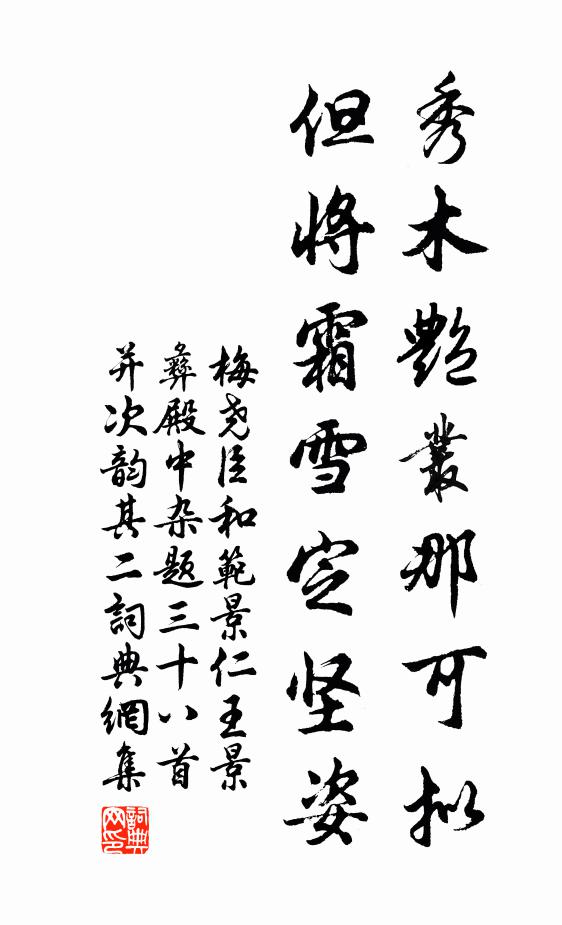 秀木艷叢那可拟
但将霜雪定坚姿
梅尧臣和範景仁王景
彝殿中杂题三十八首
并次韵其二詞典網集
詞典网印